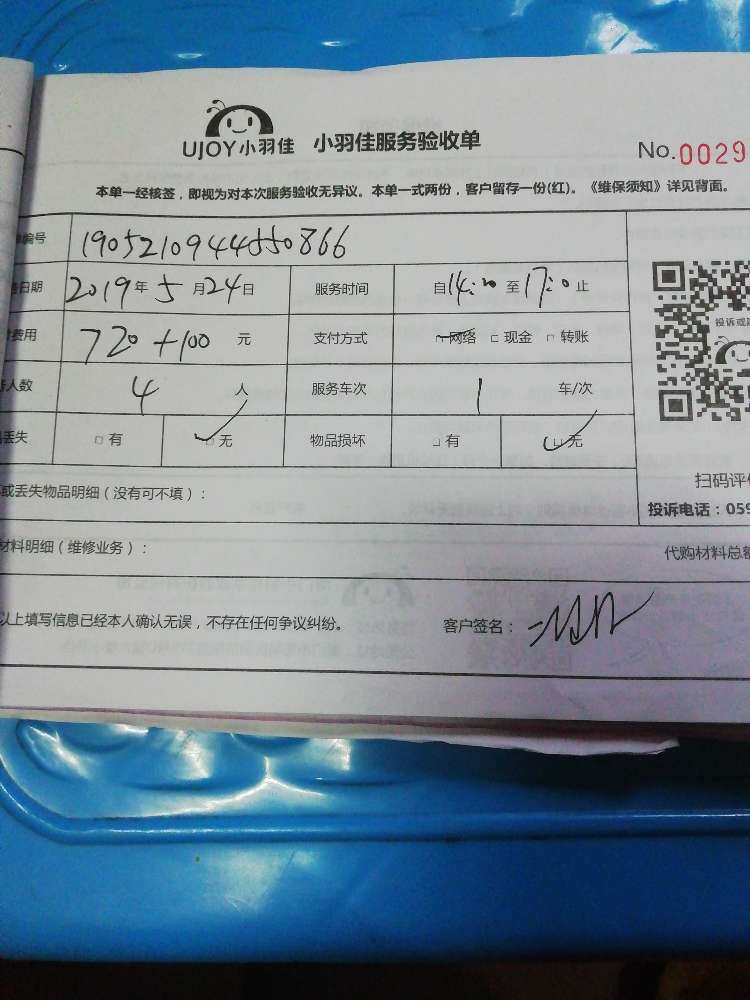 UJOY小羽佳 小羽佳服务验收单 No.0029
本单一经核签，即视为对本次服务验收无异议。本单一式两份，客户留存一份(红)。《维保须知》详见背面。
编号 1905210944550866
日期 2019年5月24日 服务时间 自14:20至17:20止
费用 720+100 元 支付方式 网络 □现金 □转账
人数 4 人 服务车次 1 车/次
丢失 □有 □无 物品损坏 □有 □无
投诉或
扫码评
或丢失物品明细（没有可不填）：
投诉电话：059
材料明细（维修业务）： 代购材料总额
以上填写信息已经本人确认无误，不存在任何争议纠纷。 客户签名：